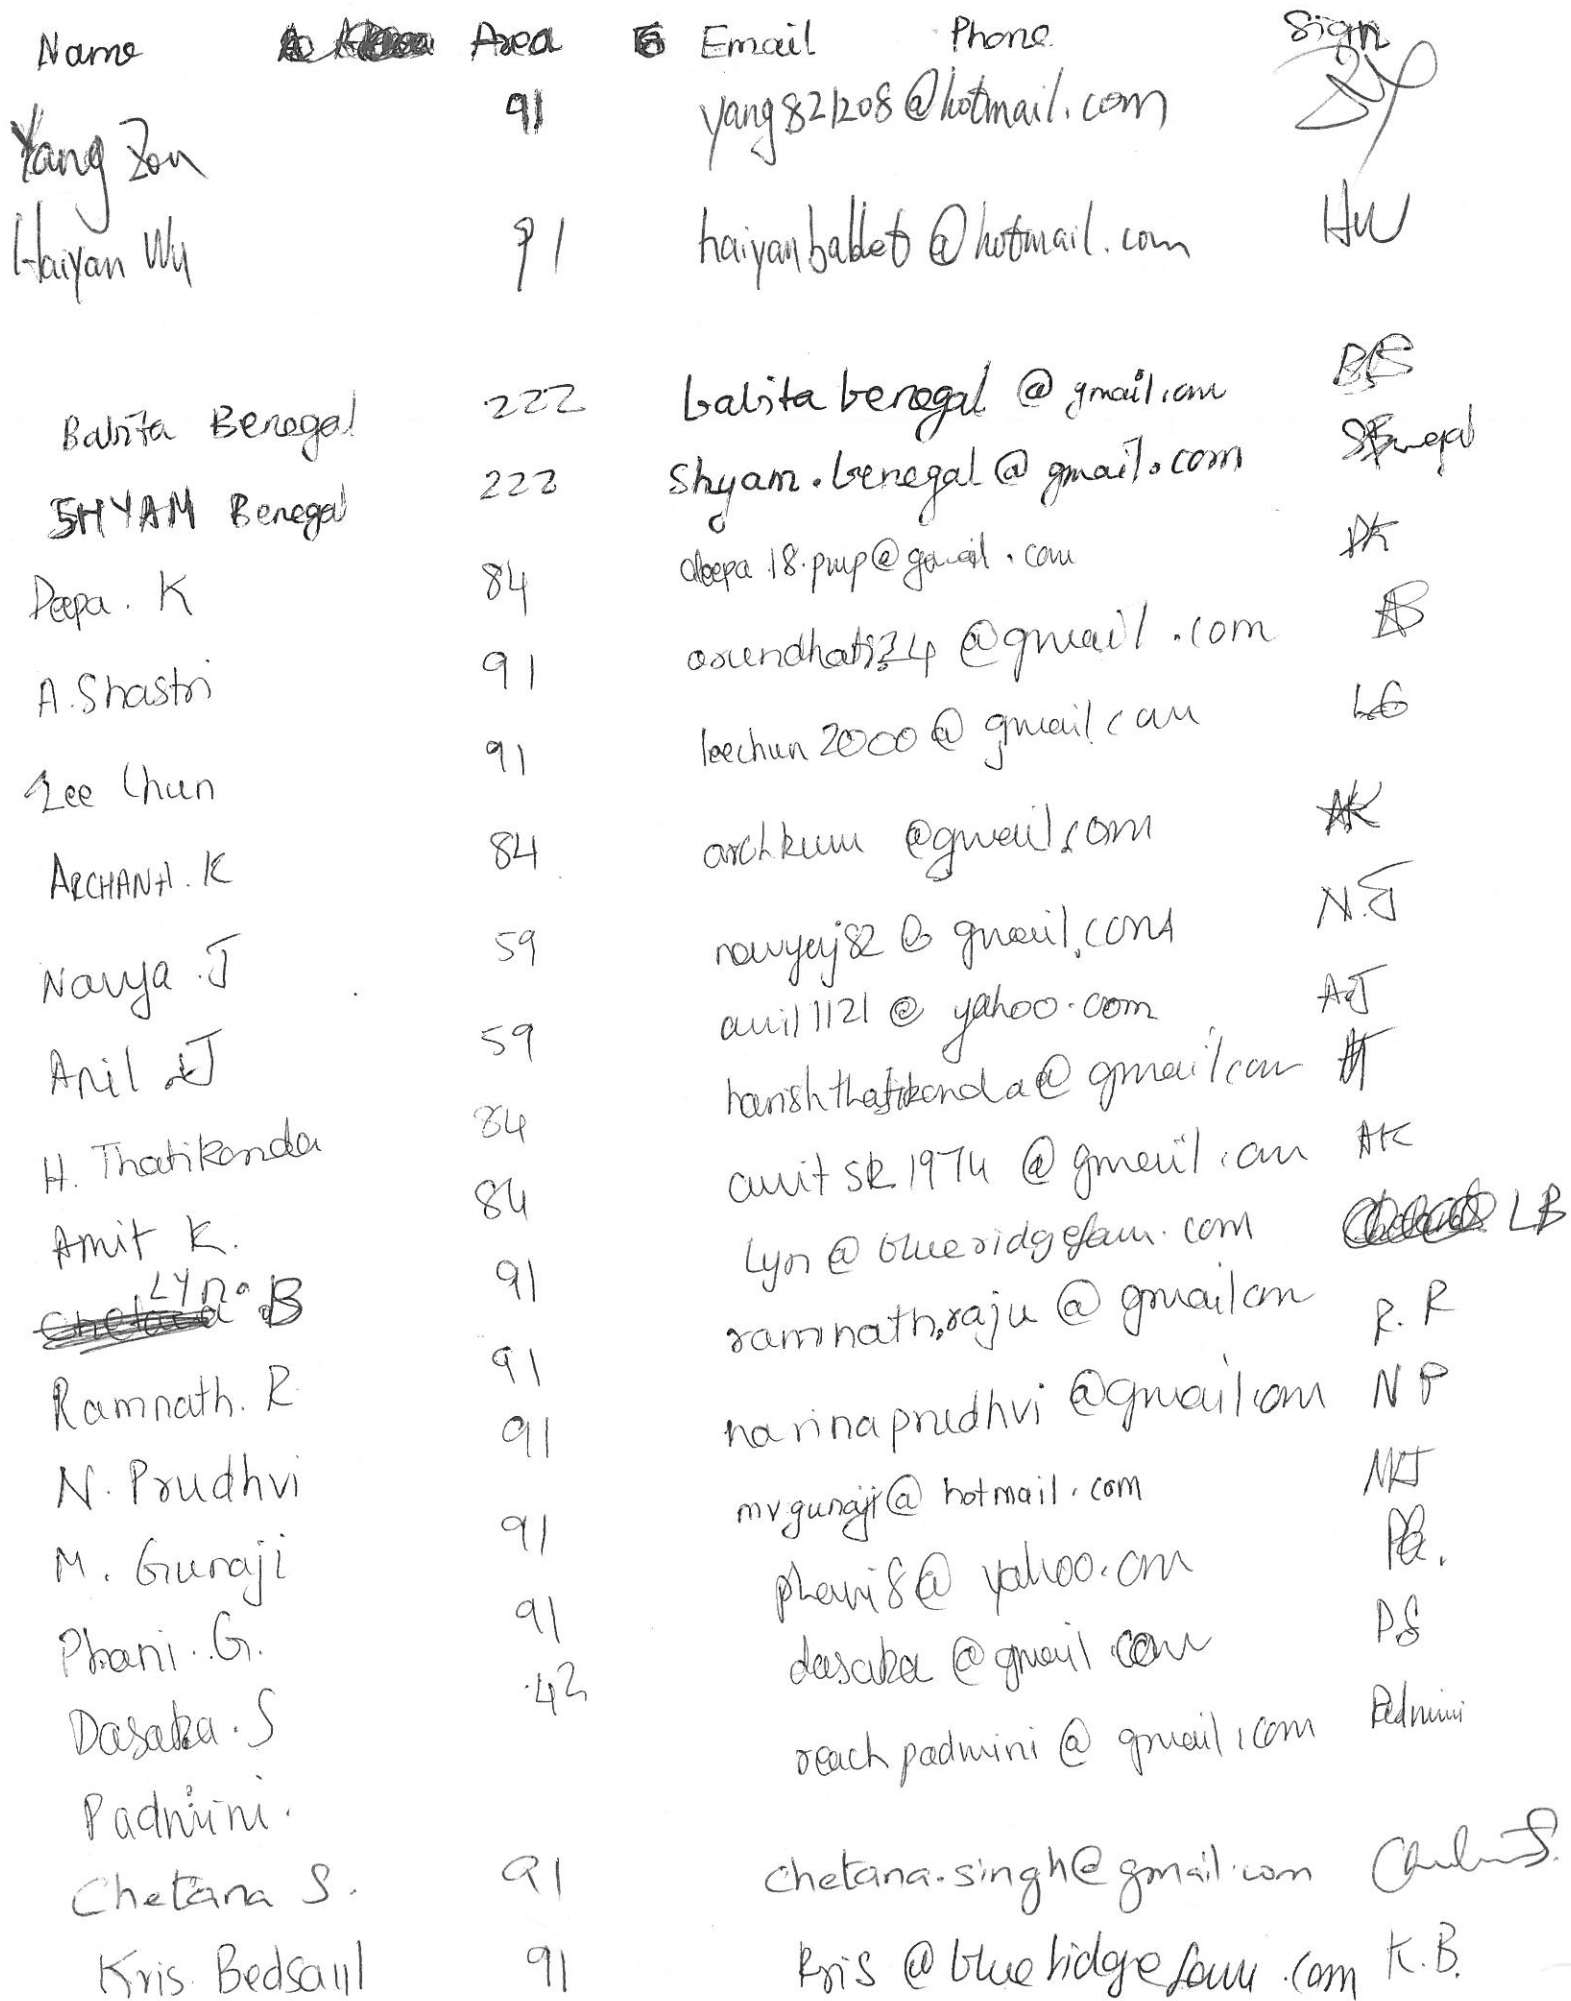 Name Area Email Phone Sign
Yang Zou 91 yang821208@hotmail.com
Haiyan Wu 91 haiyanballet@hotmail.com HW
Babita Benegal 222 babita benegal @ gmail.com BB
SHYAM Benegal 222 Shyam.benegal@gmail.com SBenegal
Deepa. K 84 deepa.18.pmp@gmail.com DK
A. Shastri 91 @gmail.com AS
Lee Chun 91 leechun2000@gmail.com
ARCHANA. K 84 archkum @gmail.com AK
Navya. J 59 navyaj82@gmail.com N.J
Anil J 59 anil1121@yahoo.com AJ
H. Thatikonda 84 harishthatikonda@gmail.com HT
Amit K. 84 amitsk1974@gmail.com AK
Lyn. B 91 Lyn@blueridgefam.com LB
Ramnath. R 91 ramnath.raju@gmail.com R.R
N. Prudhvi 91 narinaprudhvi@gmail.com NP
M. Gunaji 91 mvgunaji@hotmail.com
Phani. G. 91 phani8@yahoo.com PG.
Dasaka. S 42 dasaka@gmail.com DS
Padmini. reachpadmini@gmail.com Padmini
Chetana S. 91 chetana.singh@gmail.com
Kris Bedsaul 91 kris@blueridgefam.com K.B.